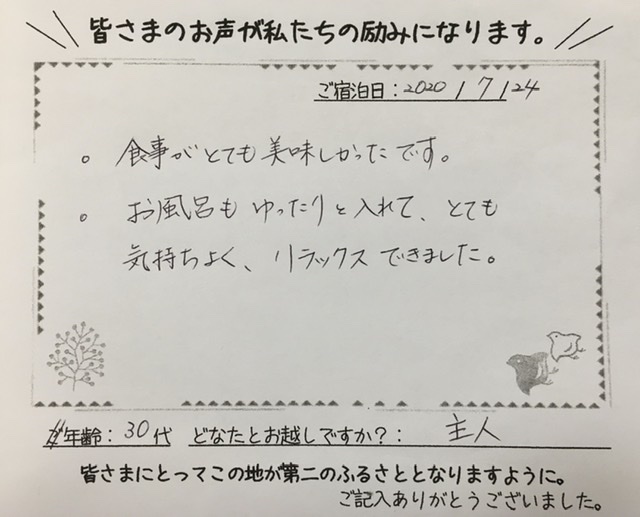 皆さまのお声が私たちの励みになります。
ご宿泊日:2020/7/24
。食事がとても美味しかったです。
。お風呂もゆったりと入れて、とても
気持ちよく、リラックスできました。
年齢:30代 どなたとお越しですか?: 主人
皆さまにとってこの地が第二のふるさととなりますように。
ご記入ありがとうございました。